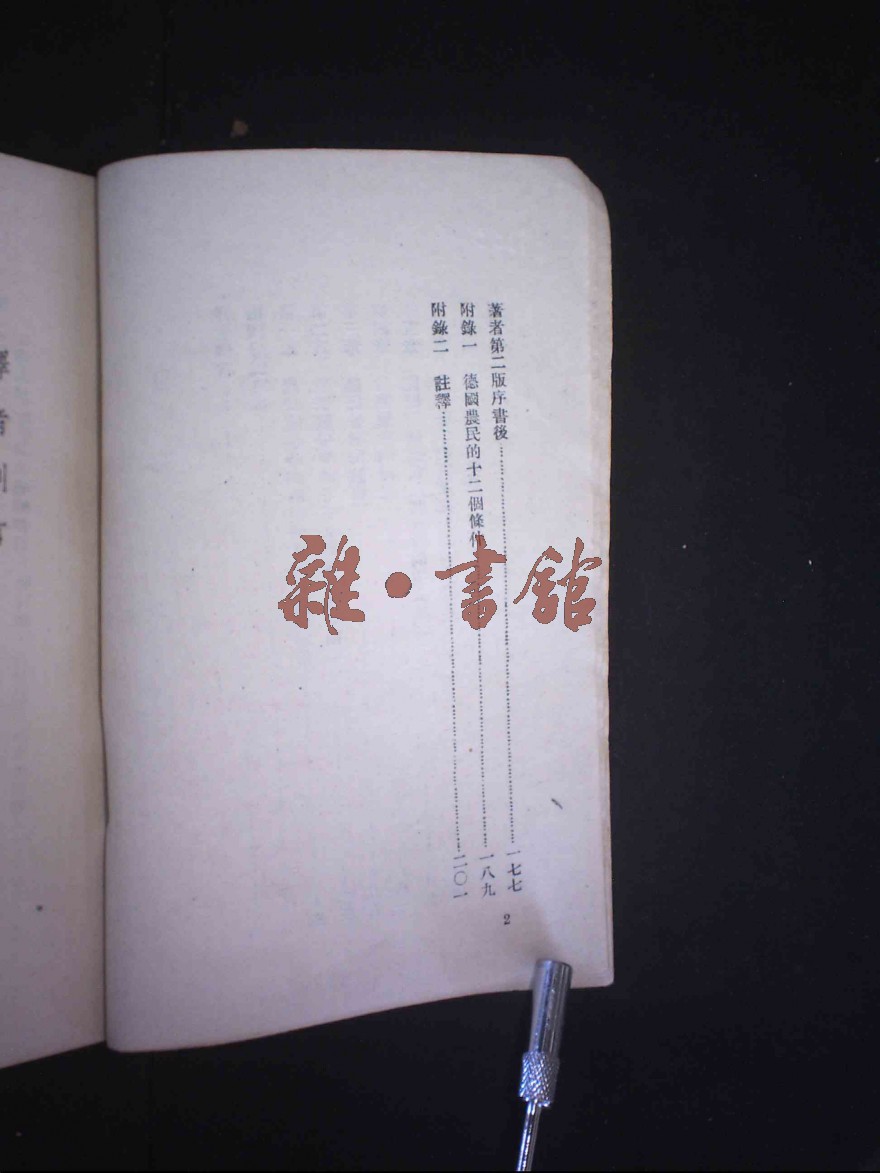 著者第二版序書後……一七七
附錄一 德國農民的十二個條件……一八九
附錄二 註釋……二〇一
2
雜·書館